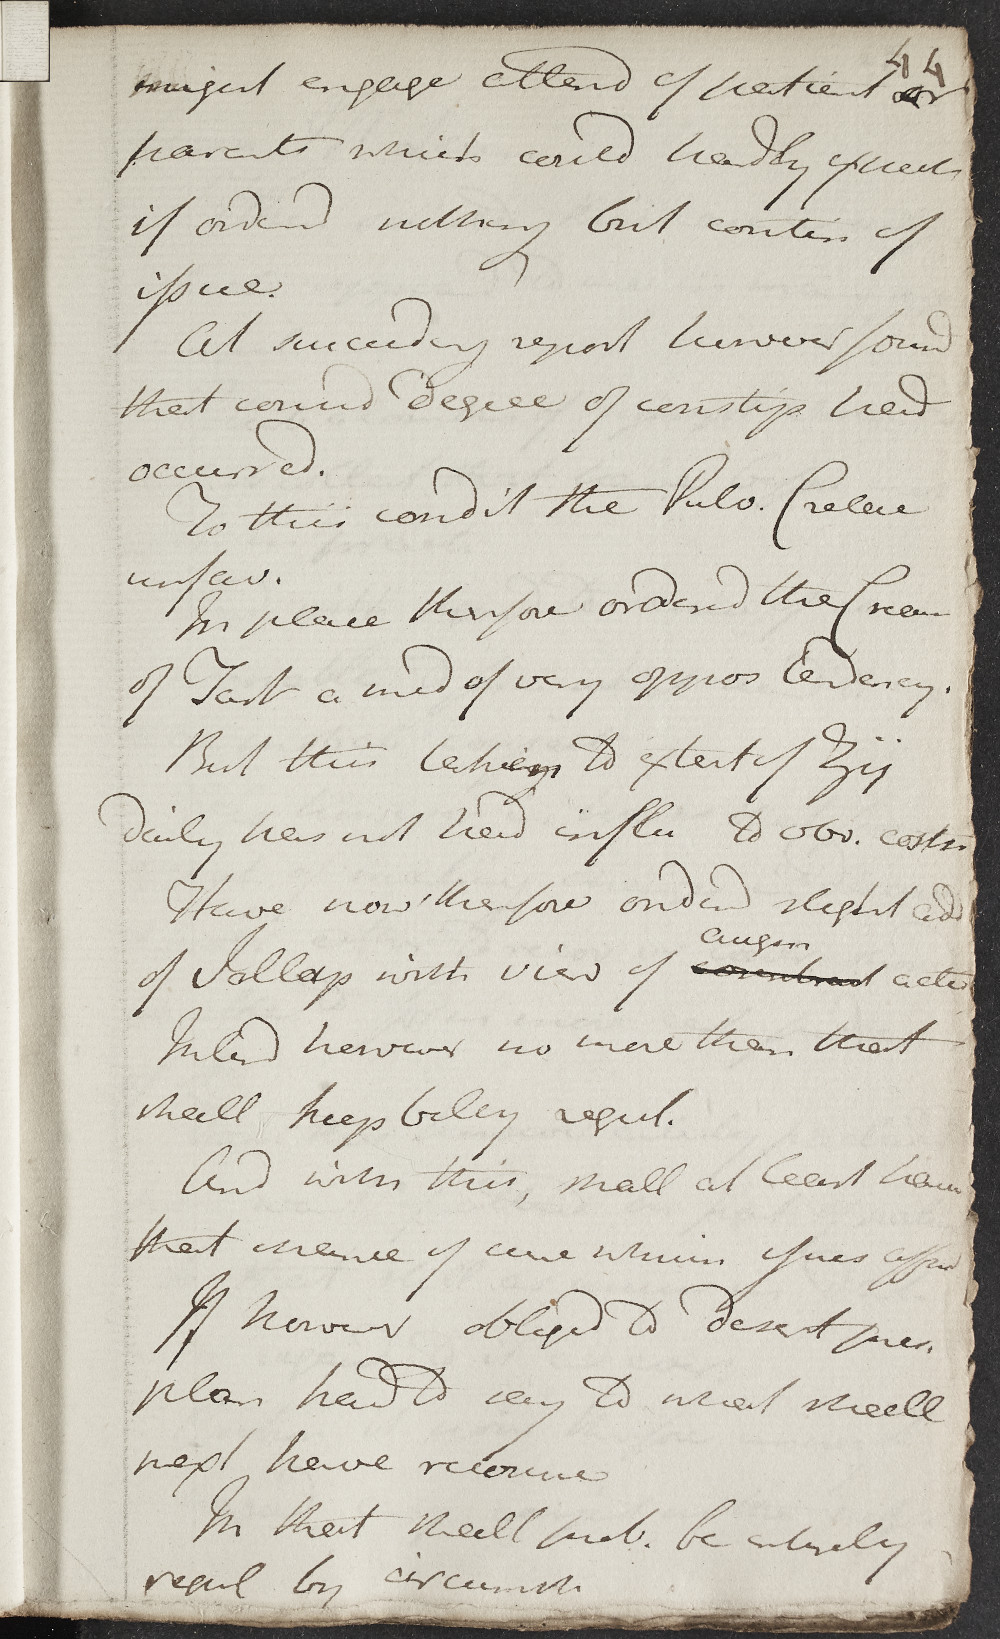 44
might engage attend of patient or
parents which could hardly expect
if orderd nothing but contin of
issue.
At succeeding report however found
that considd degree of constip had
occurred.
To this condit the Pulv. Cretae
unfav.
In place therefore ordered the Cream
of Tart a med of very oppos tendency.
But this taken to extent of ʒij
daily has not had influ to obv. costiv
Have now therefore orderd slight add
of Jallap with view of augm
action
Intend however no more than that
shall keep belly regul.
And with this, shall at least have
that chance of cure which issues afford
If however obliged to desert pres.
plan hard to say to what shall
next have recourse
In that shall prob. be entirely
regul by circumst